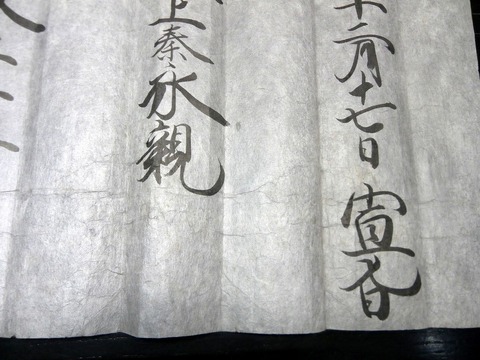 二月十七日 宣旨
上秦永親